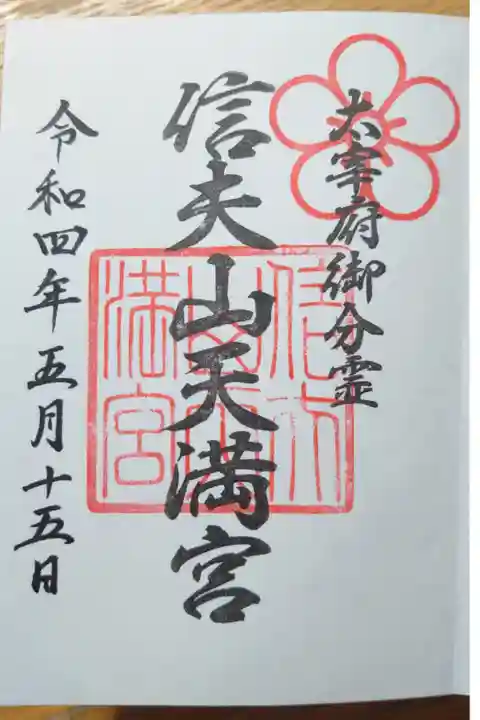 太宰府御分霊
信夫山天満宮
信夫山天満宮
令和四年五月十五日